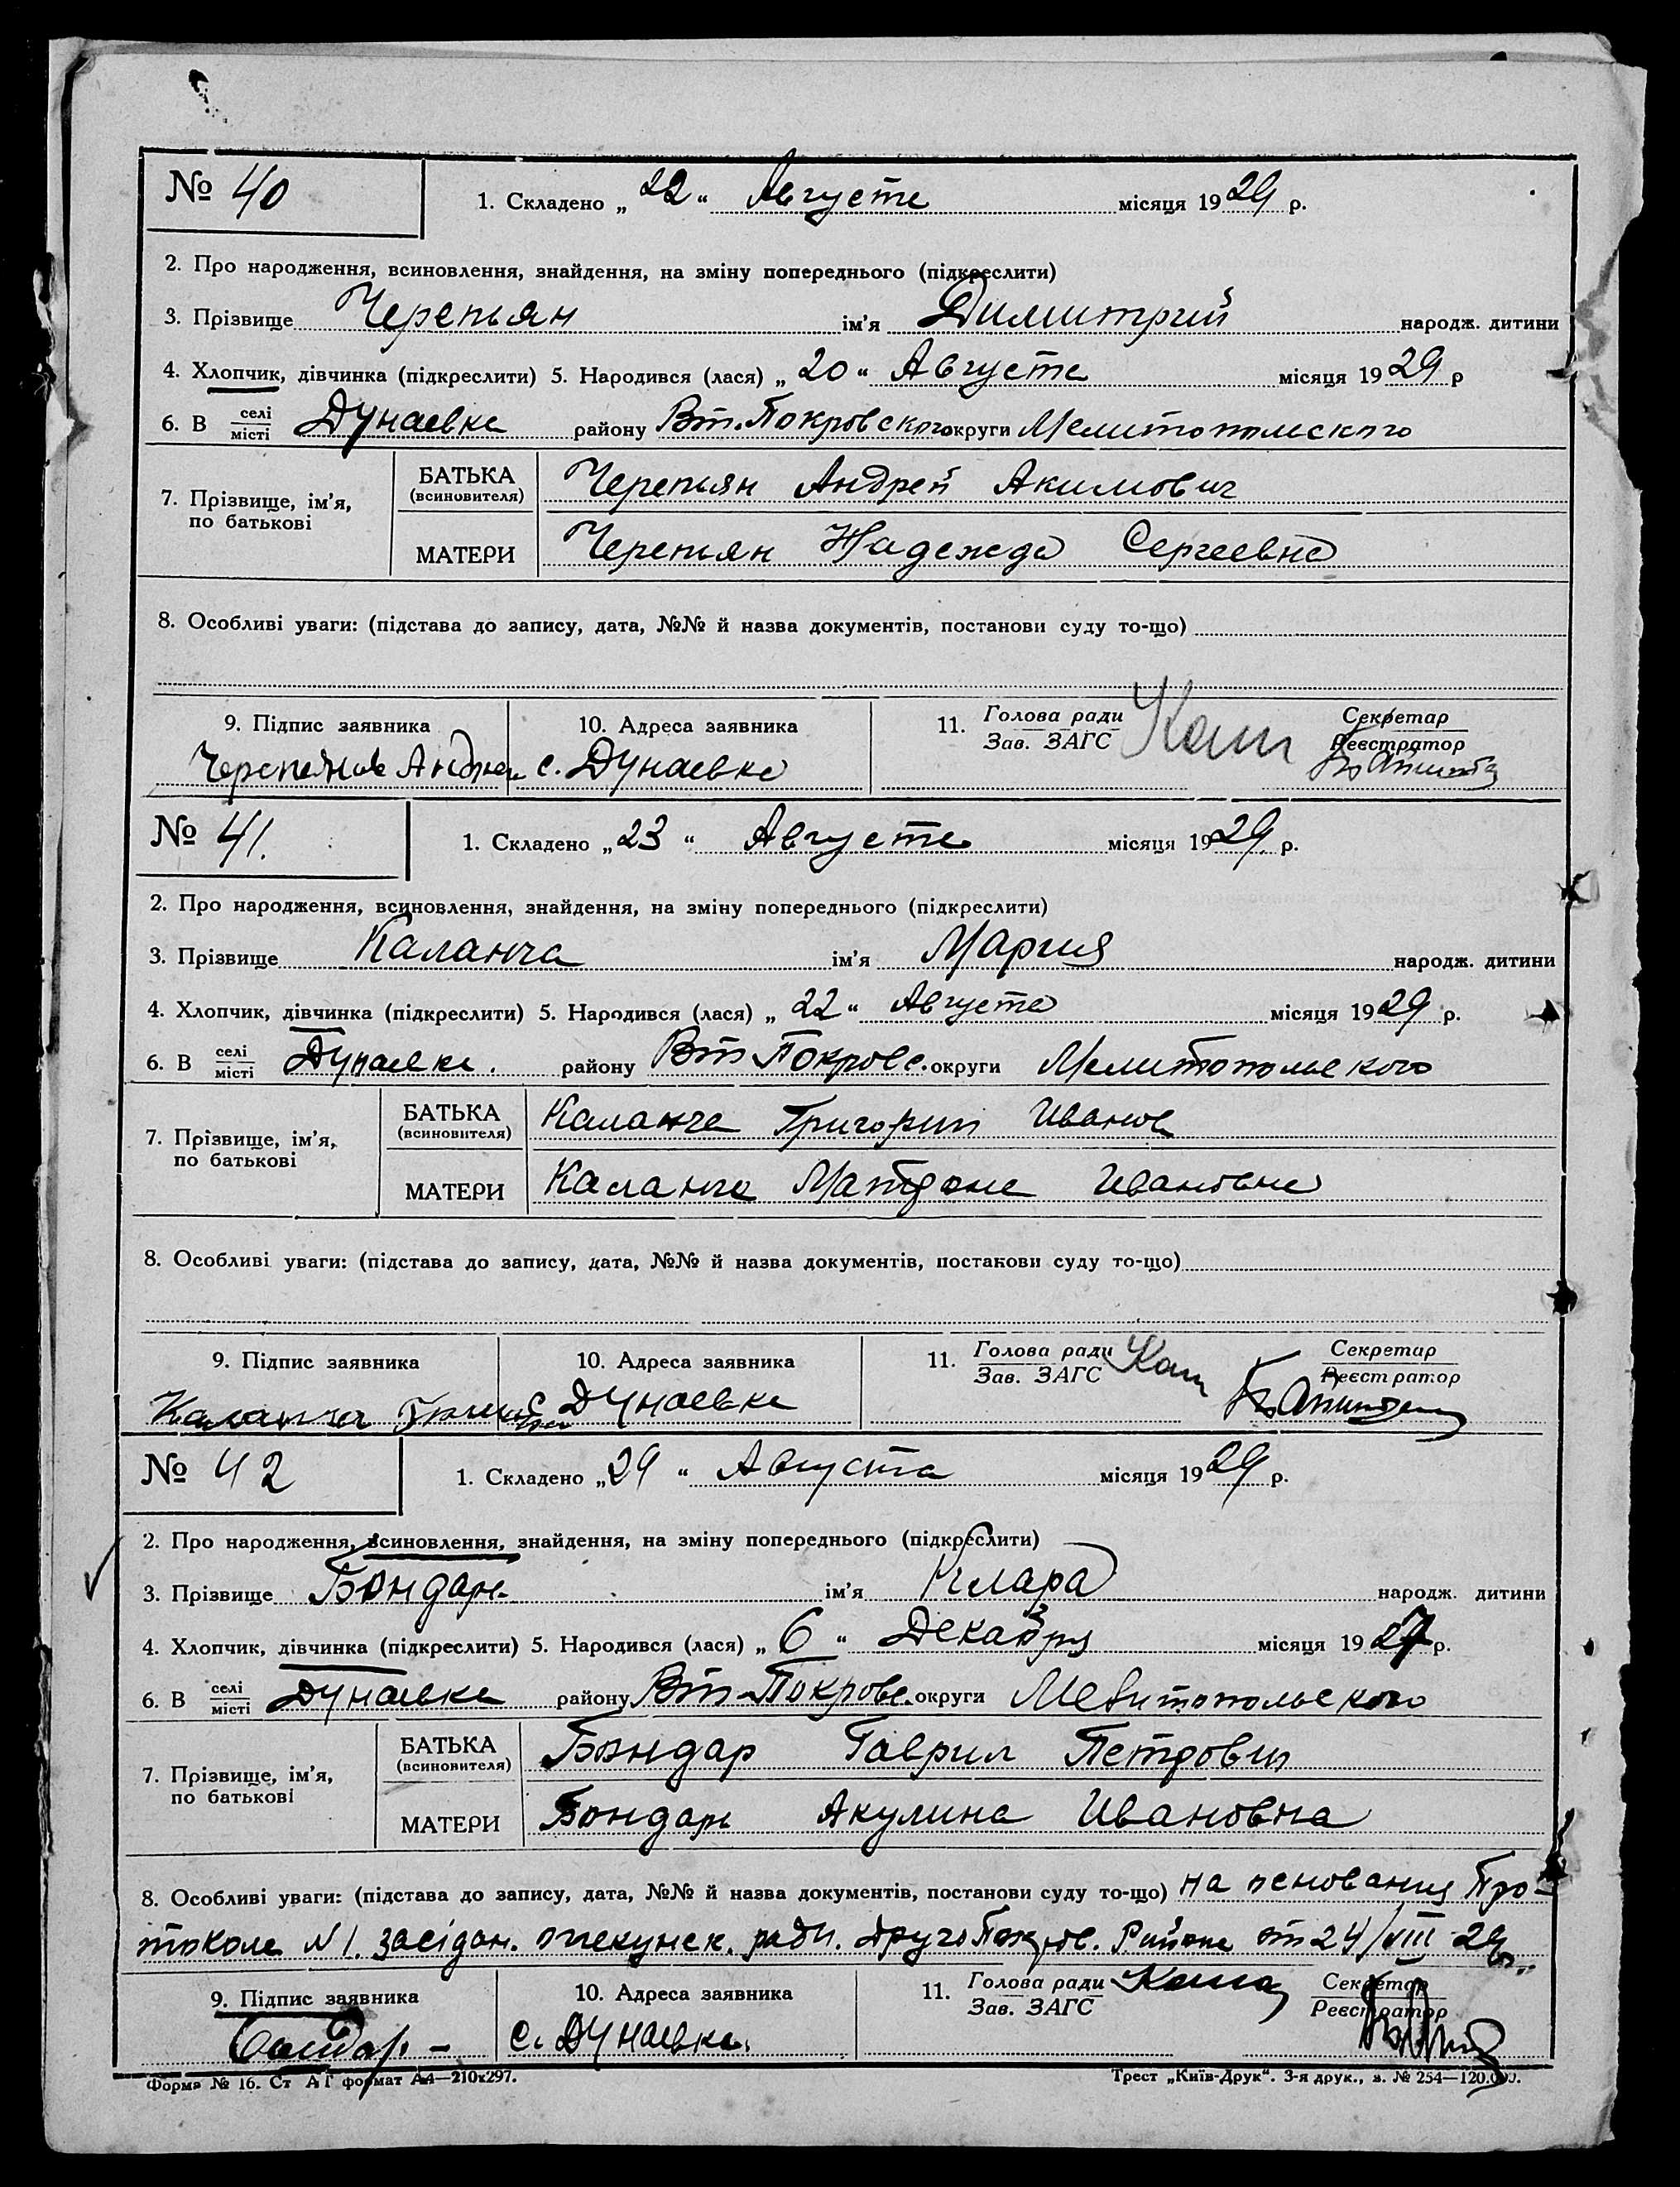 № 40 1. Складено „22“ Августа місяця 1929 р.
2. Про народження, всиновлення, знайдення, на зміну попереднього (підкреслити)
3. Прізвище Черепьян ім'я Димитрий народж. дитини
4. Хлопчик, дівчинка (підкреслити) 5. Народився (лася) „20“ Августа місяця 1929 р
6. В селі місті Дунаевка району Вт.Покровского округи Мелитопольского
7. Прізвище, ім'я, по батькові
БАТЬКА (всиновителя) Черепьян Андрей Акимович
МАТЕРИ Черепьян Надежда Сергеевна
8. Особливі уваги: (підстава до запису, дата, №№ й назва документів, постанови суду то-що)
9. Підпис заявника 10. Адреса заявника 11. Голова ради Зав. ЗАГС Секретар Реєстратор
с. Дунаевка
№ 41. 1. Складено „23“ Августа місяця 1929 р.
2. Про народження, всиновлення, знайдення, на зміну попереднього (підкреслити)
3. Прізвище Каланча ім'я Мария народж. дитини
4. Хлопчик, дівчинка (підкреслити) 5. Народився (лася) „22“ Августа місяця 1929 р.
6. В селі місті Дунаевка. району Вт Покровс. округи Мелитопольского
7. Прізвище, ім'я, по батькові
БАТЬКА (всиновителя) Каланча Григорий Иванов
МАТЕРИ Каланча Матрона Ивановна
8. Особливі уваги: (підстава до запису, дата, №№ й назва документів, постанови суду то-що)
9. Підпис заявника 10. Адреса заявника 11. Голова ради Зав. ЗАГС Секретар Реєстратор
Каланча с Дунаевка
№ 42 1. Складено „29“ Августа місяця 1929 р.
2. Про народження, всиновлення, знайдення, на зміну попереднього (підкреслити)
3. Прізвище Бондарь ім'я Клара народж. дитини
4. Хлопчик, дівчинка (підкреслити) 5. Народився (лася) „6“ Декабря місяця 1927 р.
6. В селі місті Дунаевка району Вт-Покровс. округи Мелитопольского
7. Прізвище, ім'я, по батькові
БАТЬКА (всиновителя) Бондар Гаврил Петрович
МАТЕРИ Бондарь Акулина Ивановна
8. Особливі уваги: (підстава до запису, дата, №№ й назва документів, постанови суду то-що) на основания Про-
токола N 1. засідан. опекунск. ради. друго Покров. Района от 24/VIII-29г.
9. Підпис заявника 10. Адреса заявника 11. Голова ради Зав. ЗАГС Секретар Реєстратор
Бондар- с. Дунаевка.
Форма № 16. Ст АГ формат А4—210х297. Трест „Київ-Друк“. 3-я друк., з. № 254—120.000.